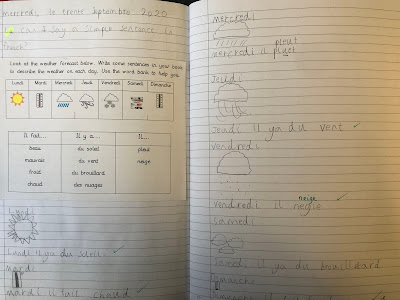 mercredi le trente septembre 2020
Can I say a simple sentence in
french?
Look at the weather forecast below. Write some sentences in your book
to describe the weather on each day. Use the word bank to help you.
Lundi Mardi Mercredi Jeudi Vendredi Samedi Dimanche
Il fait... Il y a... Il...
beau du soleil pleut
mauvais du vent neige
froid du brouillard
chaud des nuages
Lundi
Lundi il ya du soleil
mardi
mardi il fait chaud
mercredi
pleut
mercredi il pluet
Jeudi
Jeudi il ya du vent
vendredi
neige
vendredi il negie
samedi
samedi il ya du brouillard